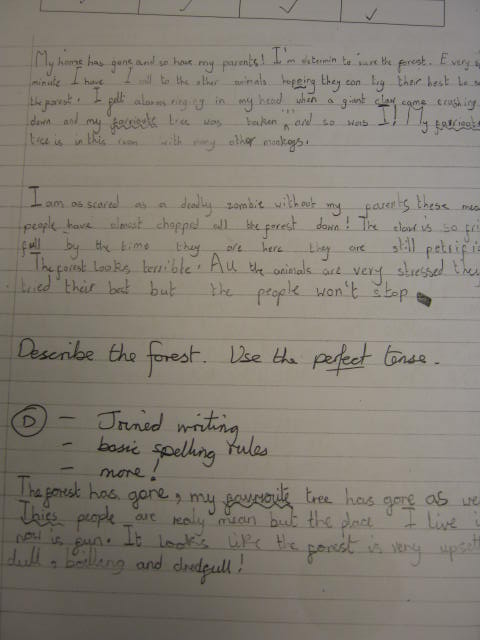 My home has gone and so have my parents! I'm determin to sure the forest. Every
minute I have I call to the other animals hopeing they can try their best to
the forest. I felt alarms ringing in my head when a giant claw came crushing
down and my favrioute tree was and so was I! My favrioute
tree is in this room with many other monkeys.
I am as scared as a deadly zombie without my parents these mea
people have almost chopped all the forest down! The claw is so fri
full by the time they are here they are still petrifi
The forest looks terrible. All the animals are very stressed they
tried their best but the people won't stop
Describe the forest. Use the perfect tense.
D - Joined writing
- basic spelling rules
- more!
The forest has gone, my favrioute tree has gone as we
Thies people are realy mean but the place I live i
now is fun. It looks like the forest is very upsett
dull, boilling and dredfull!